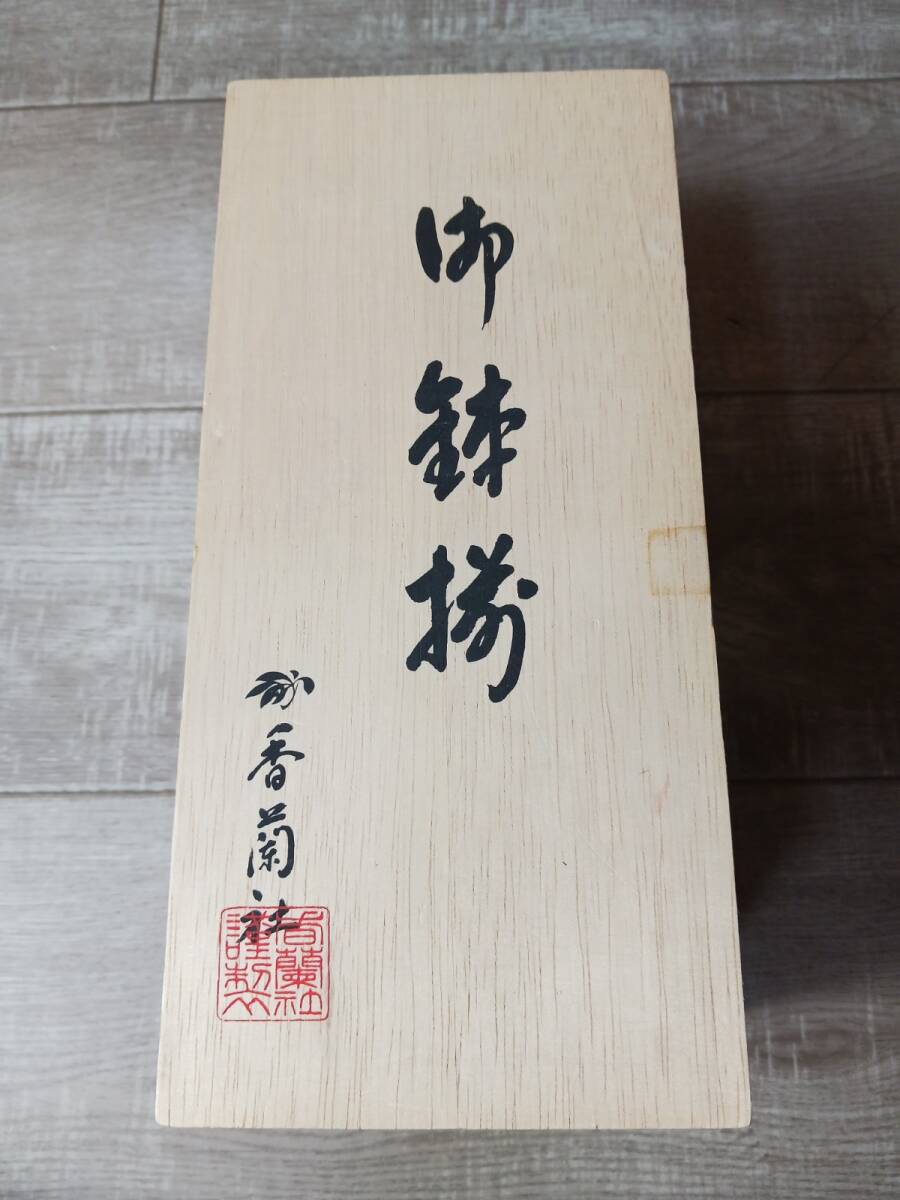 御鉢揃
香蘭社
香蘭社
謹製